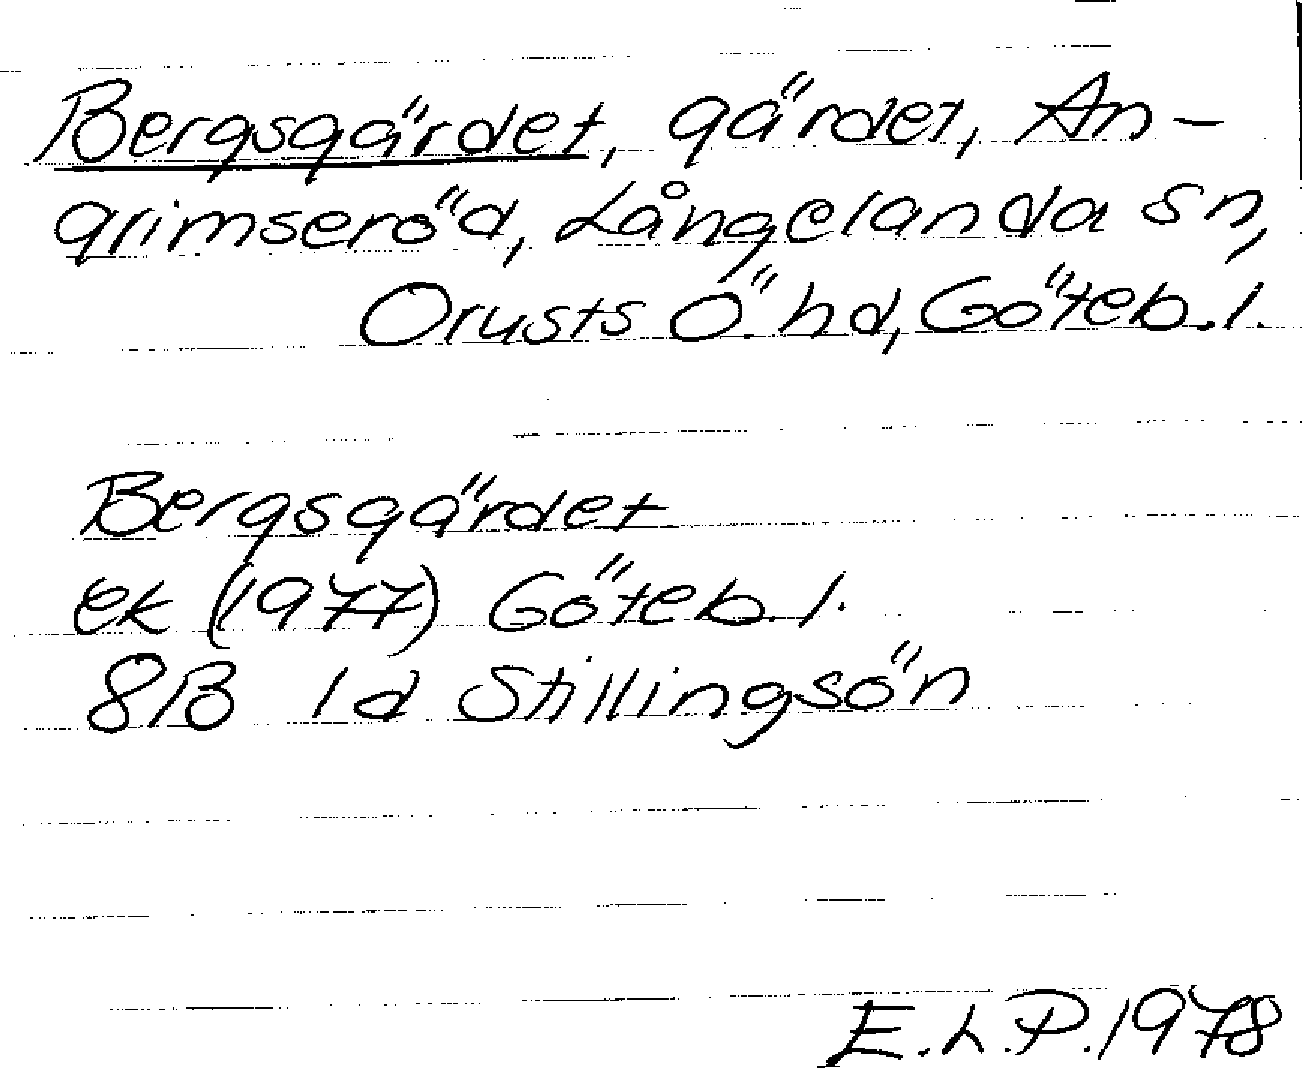 Bergsgärdet, gärdet, An-
grimseröd, Långelanda sn,
Orusts Ö. hd, Göteb. l.
Bergsgärdet
ek (1977) Göteb. l.
8B 1d Stillingsön
E.L.P. 1978